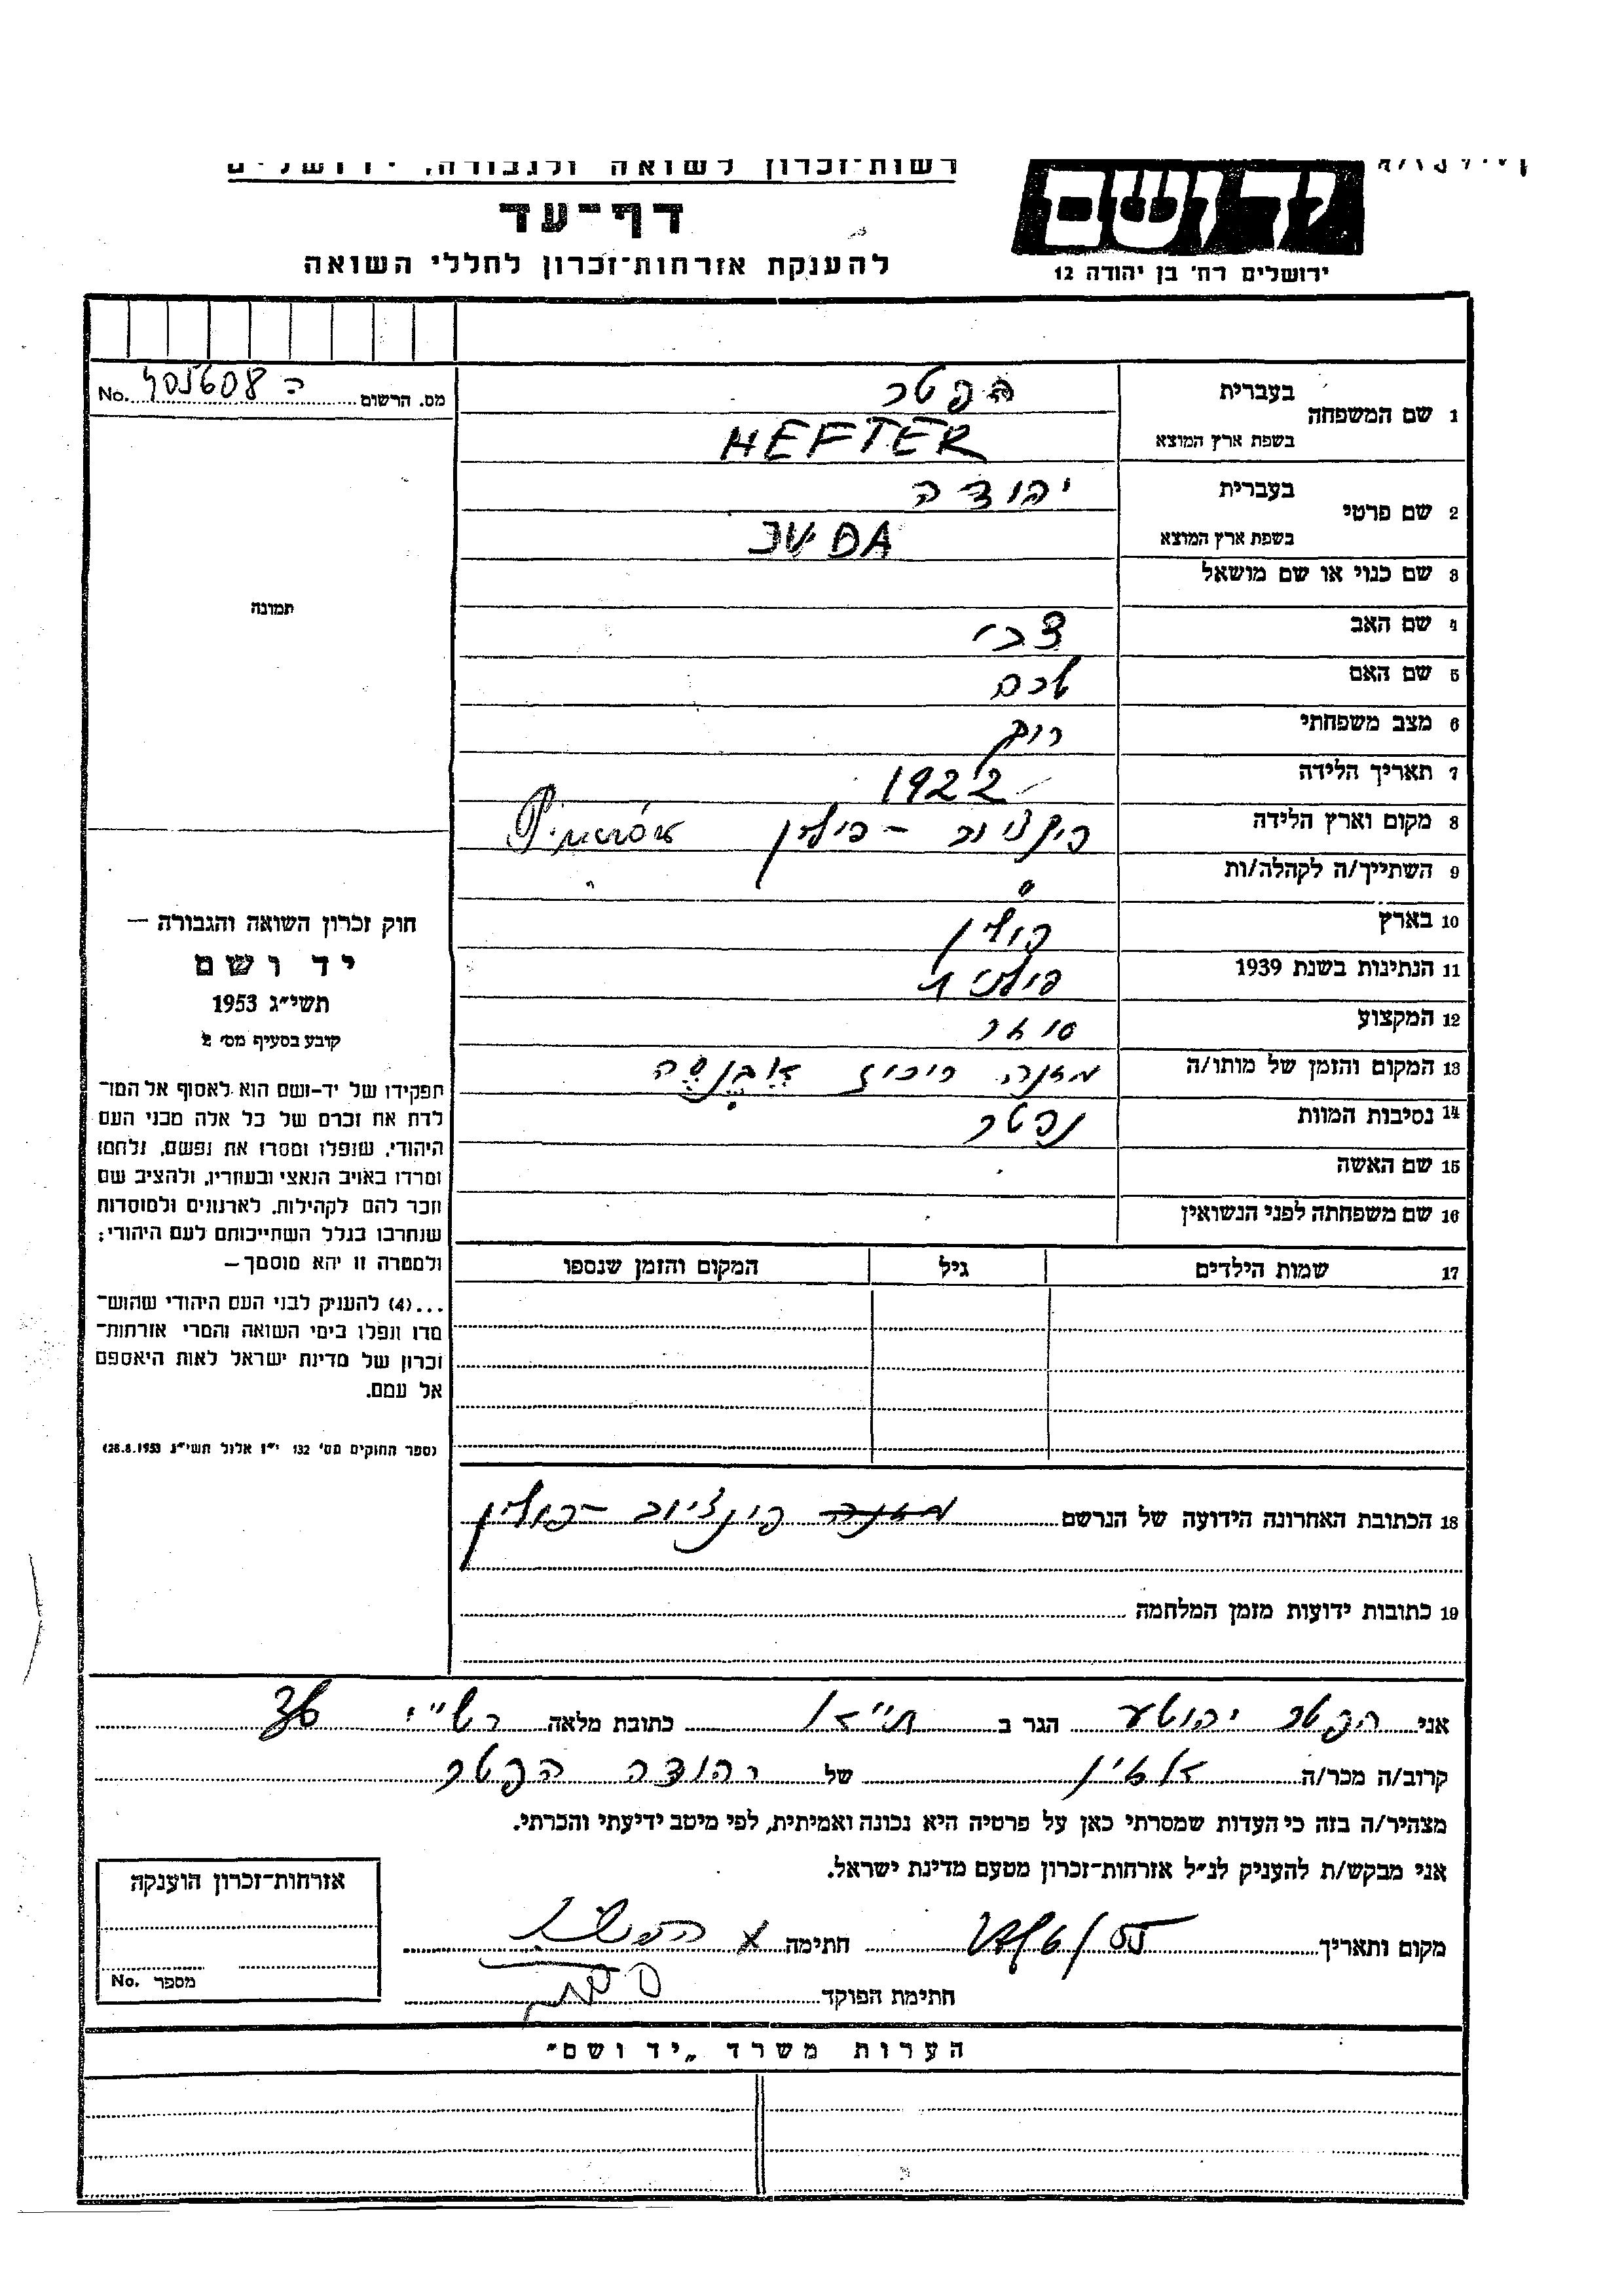 רשות־זכרון לשואה ולגבורה, ירושלים
יד ושם
דף־עד
להענקת אזרחות־זכרון לחללי השואה
ירושלים רח' בן יהודה 12
מס. הרשום 405608 ה No.
1 שם המשפחה
בעברית הפטר
בשפת ארץ המוצא HEFTER
2 שם פרטי
בעברית יהודה
בשפת ארץ המוצא JUDA
3 שם כנוי או שם מושאל
4 שם האב צבי
5 שם האם
6 מצב משפחתי רוק
7 תאריך הלידה 1922
8 מקום וארץ הלידה פינצ'וב - פולין Pinczów
9 השתייך/ה לקהלה/ות
10 בארץ פולין
11 הנתינות בשנת 1939 פולנית
12 המקצוע סוחר
13 המקום והזמן של מותו/ה מחנה ריכוז אבנסה
14 נסיבות המוות נפטר
15 שם האשה
16 שם משפחתה לפני הנשואין
17 שמות הילדים גיל המקום והזמן שנספו
18 הכתובת האחרונה הידועה של הנרשם מחנה פינצ'וב - פולין
19 כתובות ידועות מזמן המלחמה
תמונה
חוק זכרון השואה והגבורה —
יד ושם
תשי״ג 1953
קובע בסעיף מס׳ 2
תפקידו של יד-ושם הוא לאסוף אל המו־
לדת את זכרם של כל אלה מבני העם
היהודי, שנפלו ומסרו את נפשם, נלחמו
ומרדו באויב הנאצי ובעוזריו, ולהציב שם
וזכר להם לקהילות, לארגונים ולמוסדות
שנחרבו בגלל השתייכותם לעם היהודי;
ולמטרה זו יהא מוסמך —
...(4) להעניק לבני העם היהודי שהוש־
מדו ונפלו בימי השואה והמרי אזרחות־
זכרון של מדינת ישראל לאות היאספם
אל עמם.
(ספר החוקים מס׳ 132 י״ז אלול תשי״ג 28.8.1953)
אני הפטר יהושע הגר ב ת״א כתובת מלאה רש״י 36
קרוב/ה מכר/ה של יהודה הפטר
מצהיר/ה בזה כי העדות שמסרתי כאן על פרטיה היא נכונה ואמיתית, לפי מיטב ידיעתי והכרתי.
אני מבקש/ת להעניק לנ״ל אזרחות־זכרון מטעם מדינת ישראל.
מקום ותאריך חתימה
חתימת הפוקד
אזרחות־זכרון הוענקה
מספר No.
הערות משרד „יד ושם״